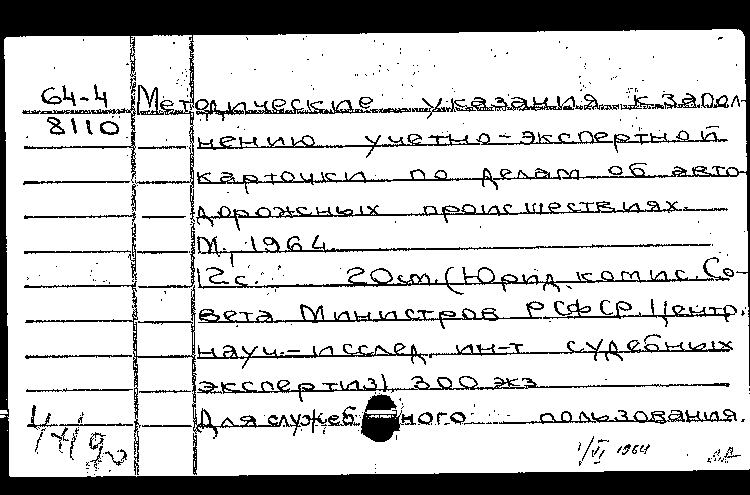 64-4 Методические указания к запол-
8110 нению учетно-экспертной
карточки по делам об авто-
дорожных происшествиях.
М., 1964.
12 с. 20 см. (Юрид. комис. Со-
вета Министров РСФСР. Центр.
науч.-исслед. ин-т судебных
экспертиз). 300 экз.
Для служебного пользования.
1/VI 1964